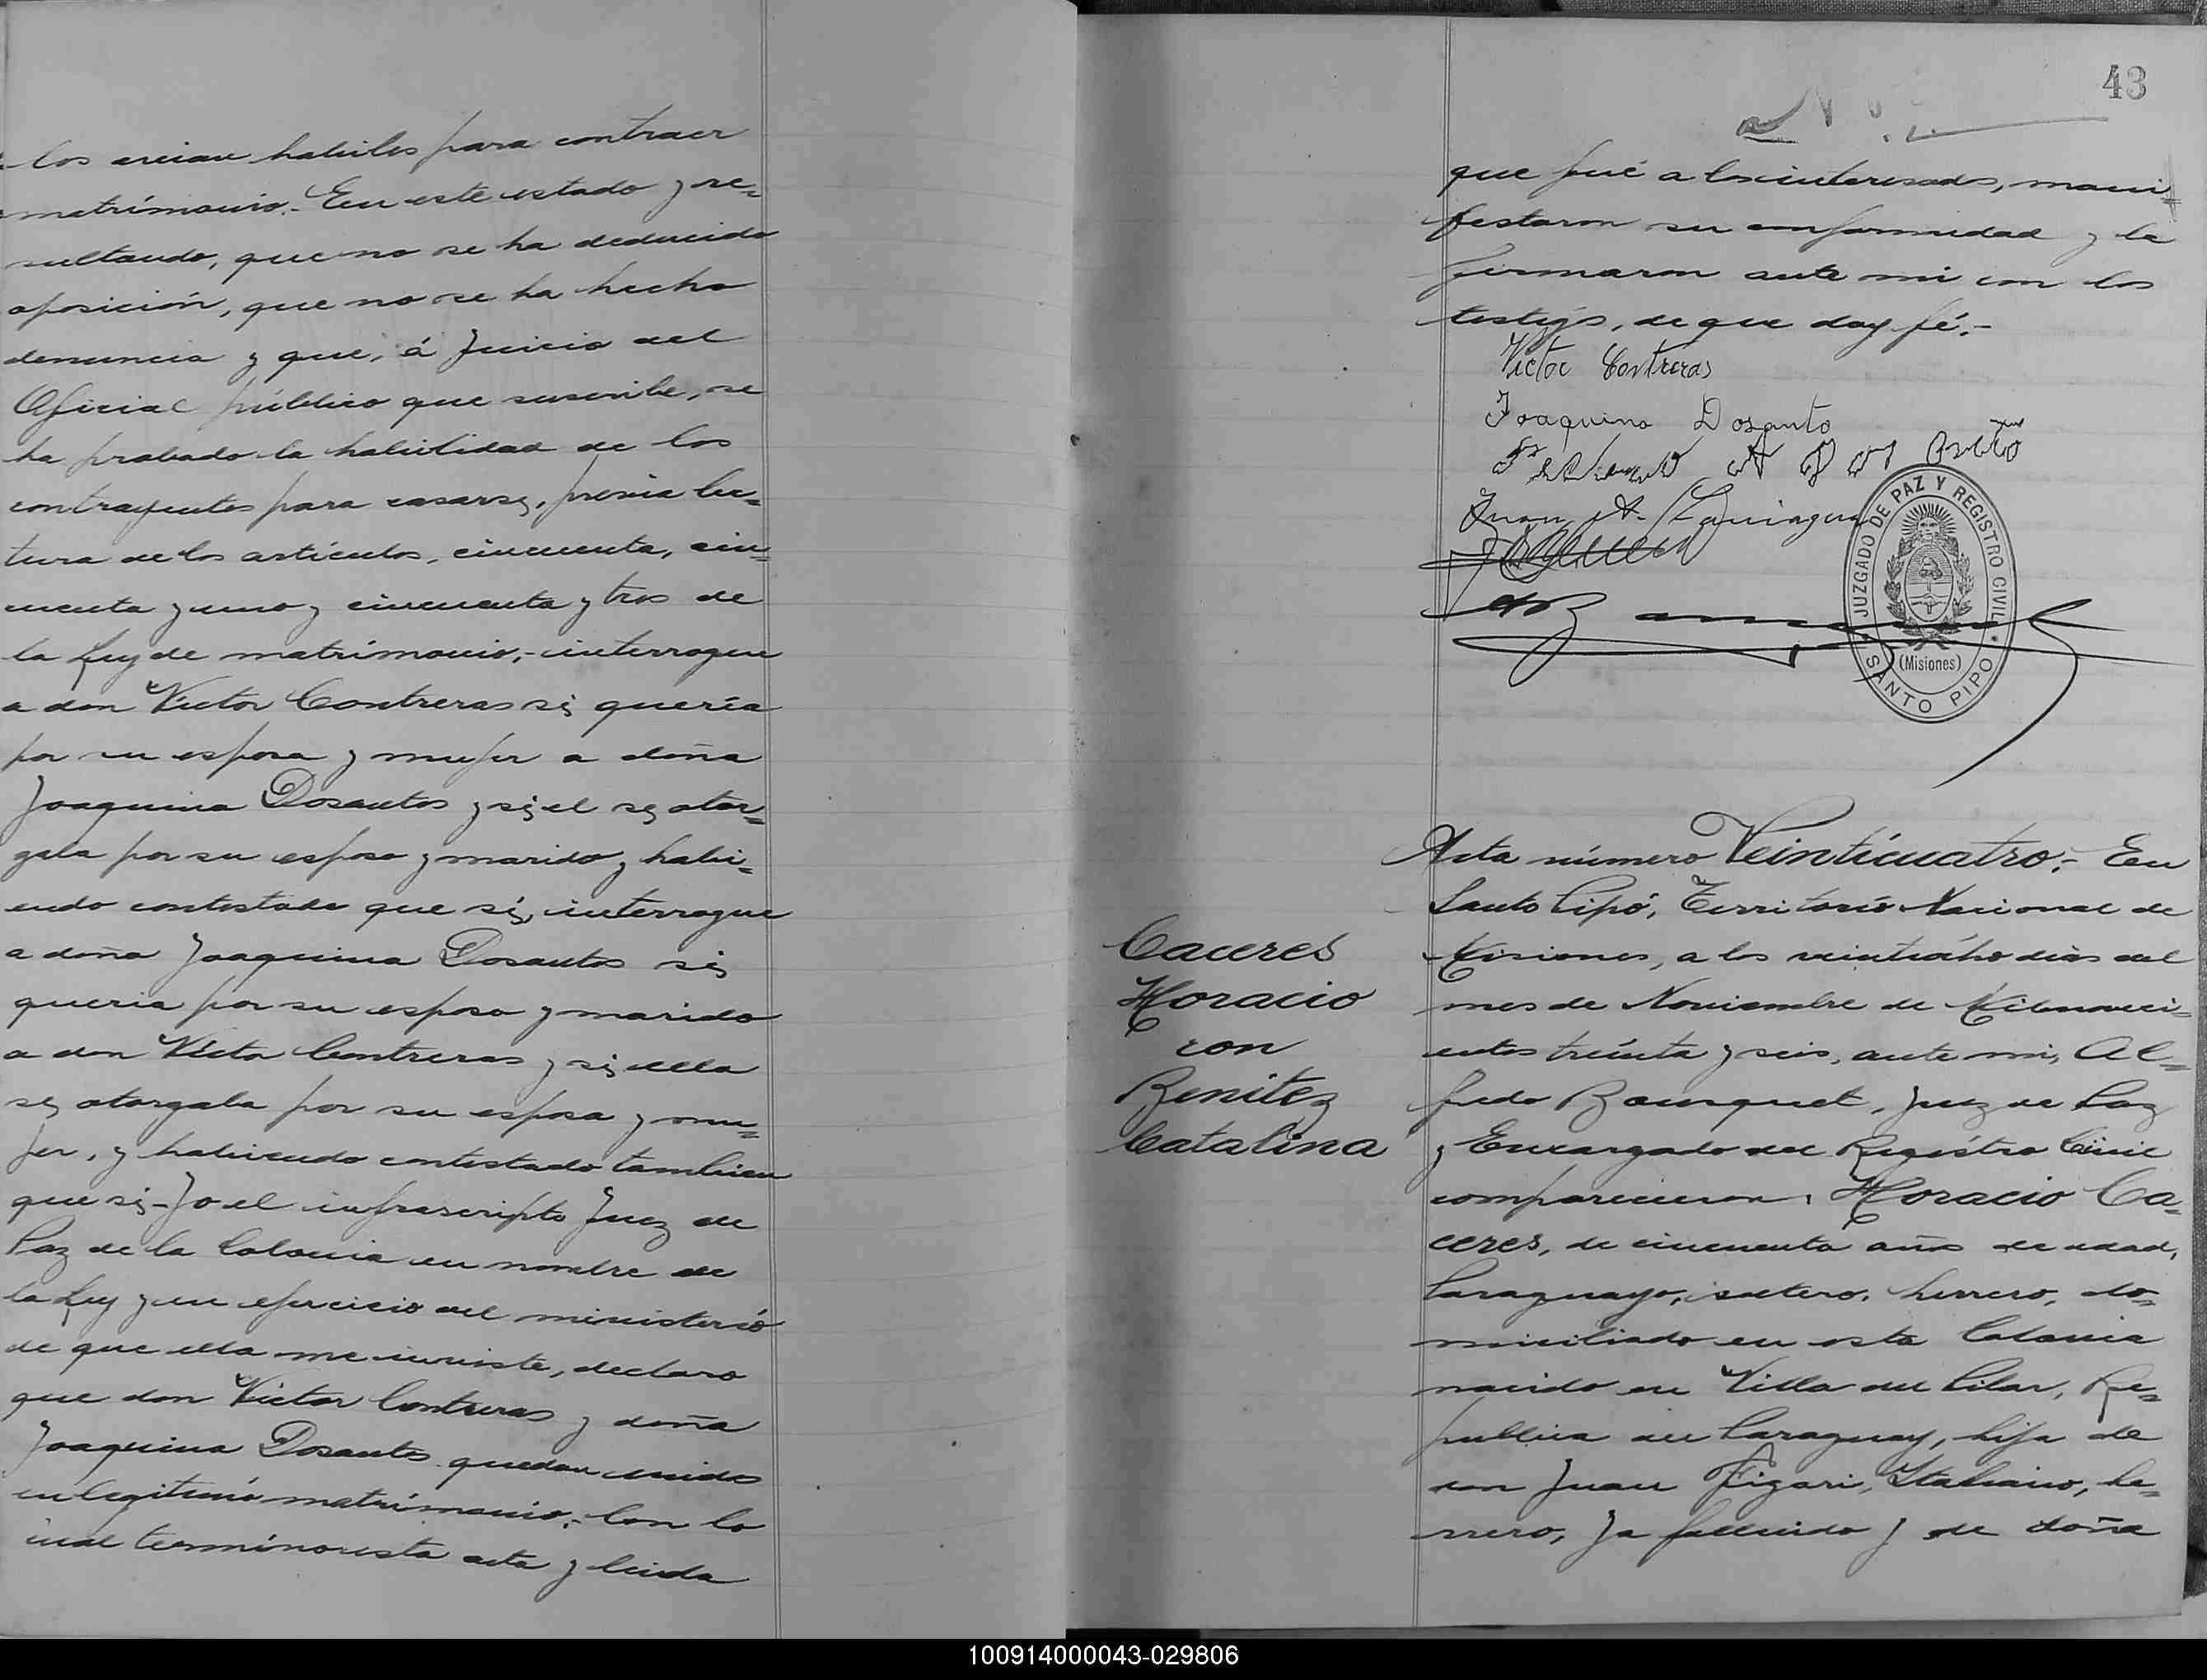 los creian habiles para contraer
matrimonio.- En este estado y re=
sultando, que no se ha deducido
oposición, que no se ha hecho
denuncia y que, á juicio del
Oficial público que suscribe, se
ha probado la habilidad de los
contrayentes para casarse, previa lec=
tura de los artículos, cincuenta, cin=
cuenta y uno y cincuenta y tres de
la Ley de matrimonio,- interrogue
a don Victor Contreras si quería
por su esposa y mujer a doña
Joaquina Dosantos y si el se otor=
gaba por su esposo y marido y habi=
endo contestado que si, interrogue
a doña Joaquina Dosantos si
queria por su esposo y marido
a don Victor Contreras y si ella
se otorgaba por su esposa y mu=
jer, y habiendo contestado tambien
que si - Yo el infrascripto Juez de
Paz de la Colonia en nombre de
la Ley y en ejercicio del ministerio
de que ella me inviste, declaro
que don Victor Contreras y doña
Joaquina Dosantos quedan unidos
en legitimo matrimonio.- Con lo
cual terminó esta acta y leida
43
que fué a los interesados, mani=
festaron su conformidad y la
firmaron ante mi con los
testigos, de que doy fé.-
Victor Contreras
Joaquina Dosanto
Juan A.
JUZGADO DE PAZ Y REGISTRO CIVIL
(Misiones)
SANTO PIPO
Acta número Veinticuatro.- En
Santo Pipó, Territorio Nacional de
Misiones, a los veintiocho dias del
mes de Noviembre de Milnoveci=
entos treinta y seis, ante mi, Al=
fredo Bousquet, Juez de Paz
y Encargado del Registro Civil
comparecieron: Horacio Ca=
ceres, de cincuenta años de edad,
Paraguayo, soltero, herrero, do=
miciliado en esta Colonia
nacido en Villa del Pilar, Re=
publica del Paraguay, hijo de
don Juan Figari, Italiano, he=
rrero, ya fallecido y de doña
Caceres
Horacio
con
Benitez
Catalina
100914000043-029806